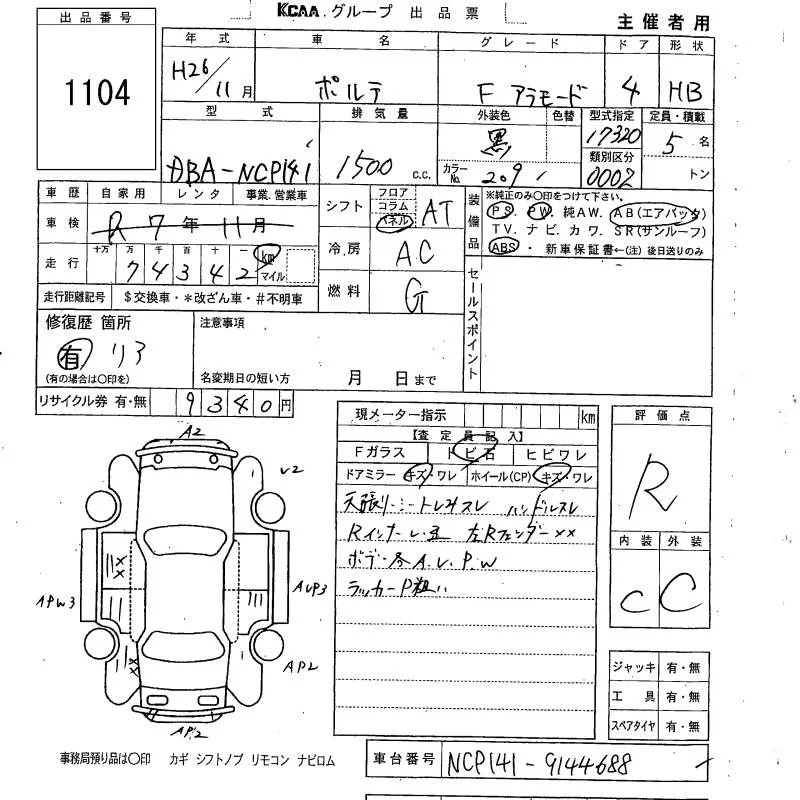 KCAA グループ 出品票
主催者用
出品番号
1104
年式 車名 グレード ドア 形状
H26/11月 ポルテ F アラモード 4 HB
型式 排気量 外装色 色替 型式指定 定員・積載
DBA-NCP141 1500 c.c. 黒 17320 5名
カラーNo. 209 類別区分 0002 トン
車歴 自家用 レンタ 事業.営業車
車検 R7年11月
走行 十万 万 千 百 十 一
74342 km マイル
走行距離記号 $交換車・*改ざん車・#不明車
シフト フロア コラム パネル AT
冷房 AC
燃料 G
装備品 ※純正のみ〇印をつけて下さい。
PS. PW. 純AW. AB(エアバッグ)
TV. ナビ. カワ. SR(サンルーフ)
ABS・ 新車保証書←(注)後日送りのみ
セールスポイント
修復歴 箇所
有 リア
(有の場合は〇印を)
注意事項
名変期日の短い方 月 日まで
リサイクル券 有・無 9340円
現メーター指示 km
【査定員記入】
Fガラス トビ石 ヒビワレ
ドアミラー キズ・ワレ ホイール(CP) キズ・ワレ
天張り・シートしみスレ ハンドルスレ
Rインナー歪 左Rフェンダー××
ボデー各A.U.P.W
ラッカーP粗い
評価点
R
内装 外装
C C
A2
V2
AUP3
APW3
AP2
AP2
ジャッキ 有・無
工具 有・無
スペアタイヤ 有・無
事務局預り品は〇印 カギ シフトノブ リモコン ナビロム
車台番号 NCP141-9144688